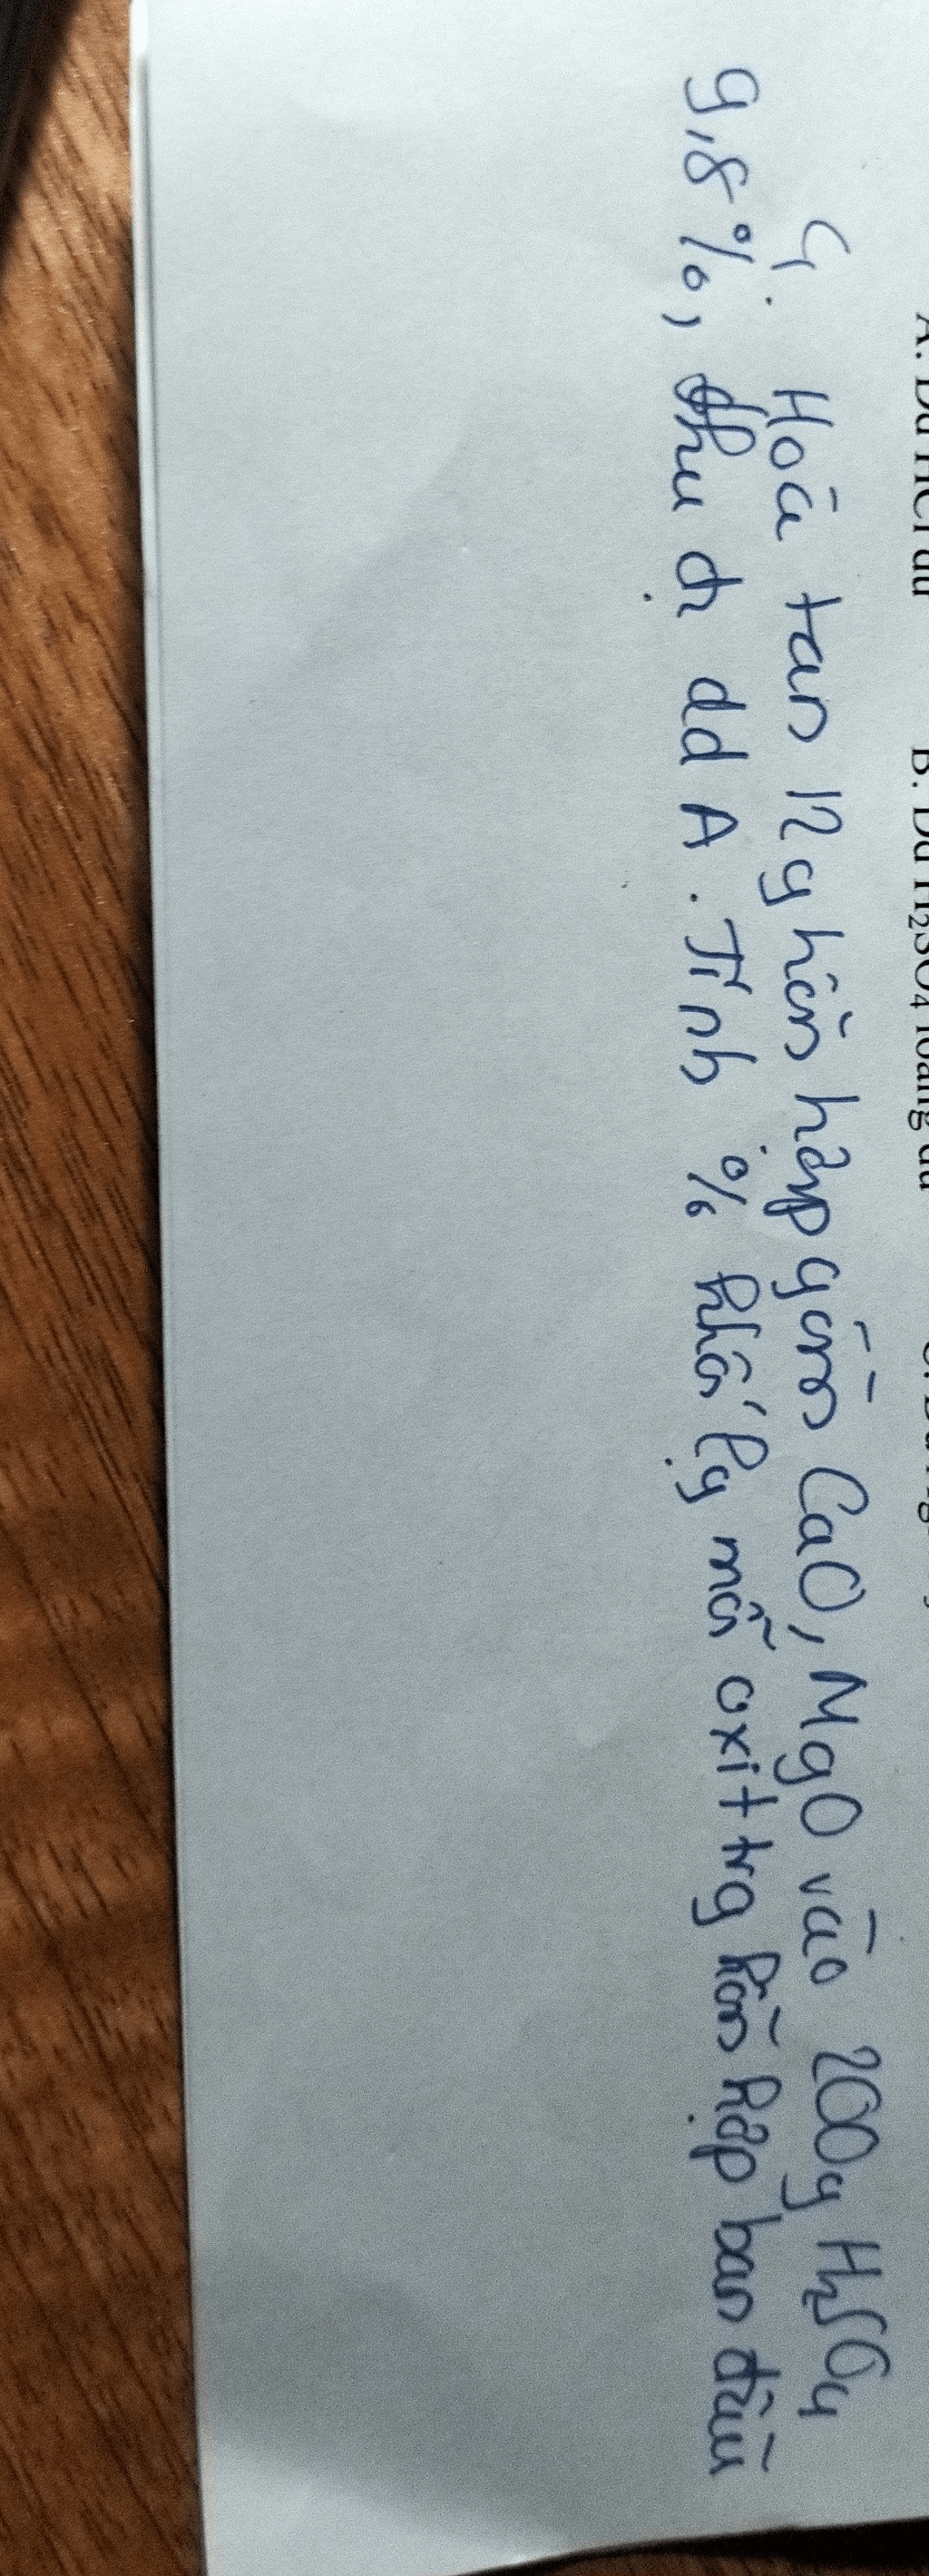 A. Dd HCl dư B. Dd H₂SO₄ loãng dư
4. Hoà tan 12g hỗn hợp gồm CaO, MgO vào 200g H₂SO₄
9,8%, thu đc dd A. Tính % khối lg mỗi oxit trg hỗn hợp ban đầu